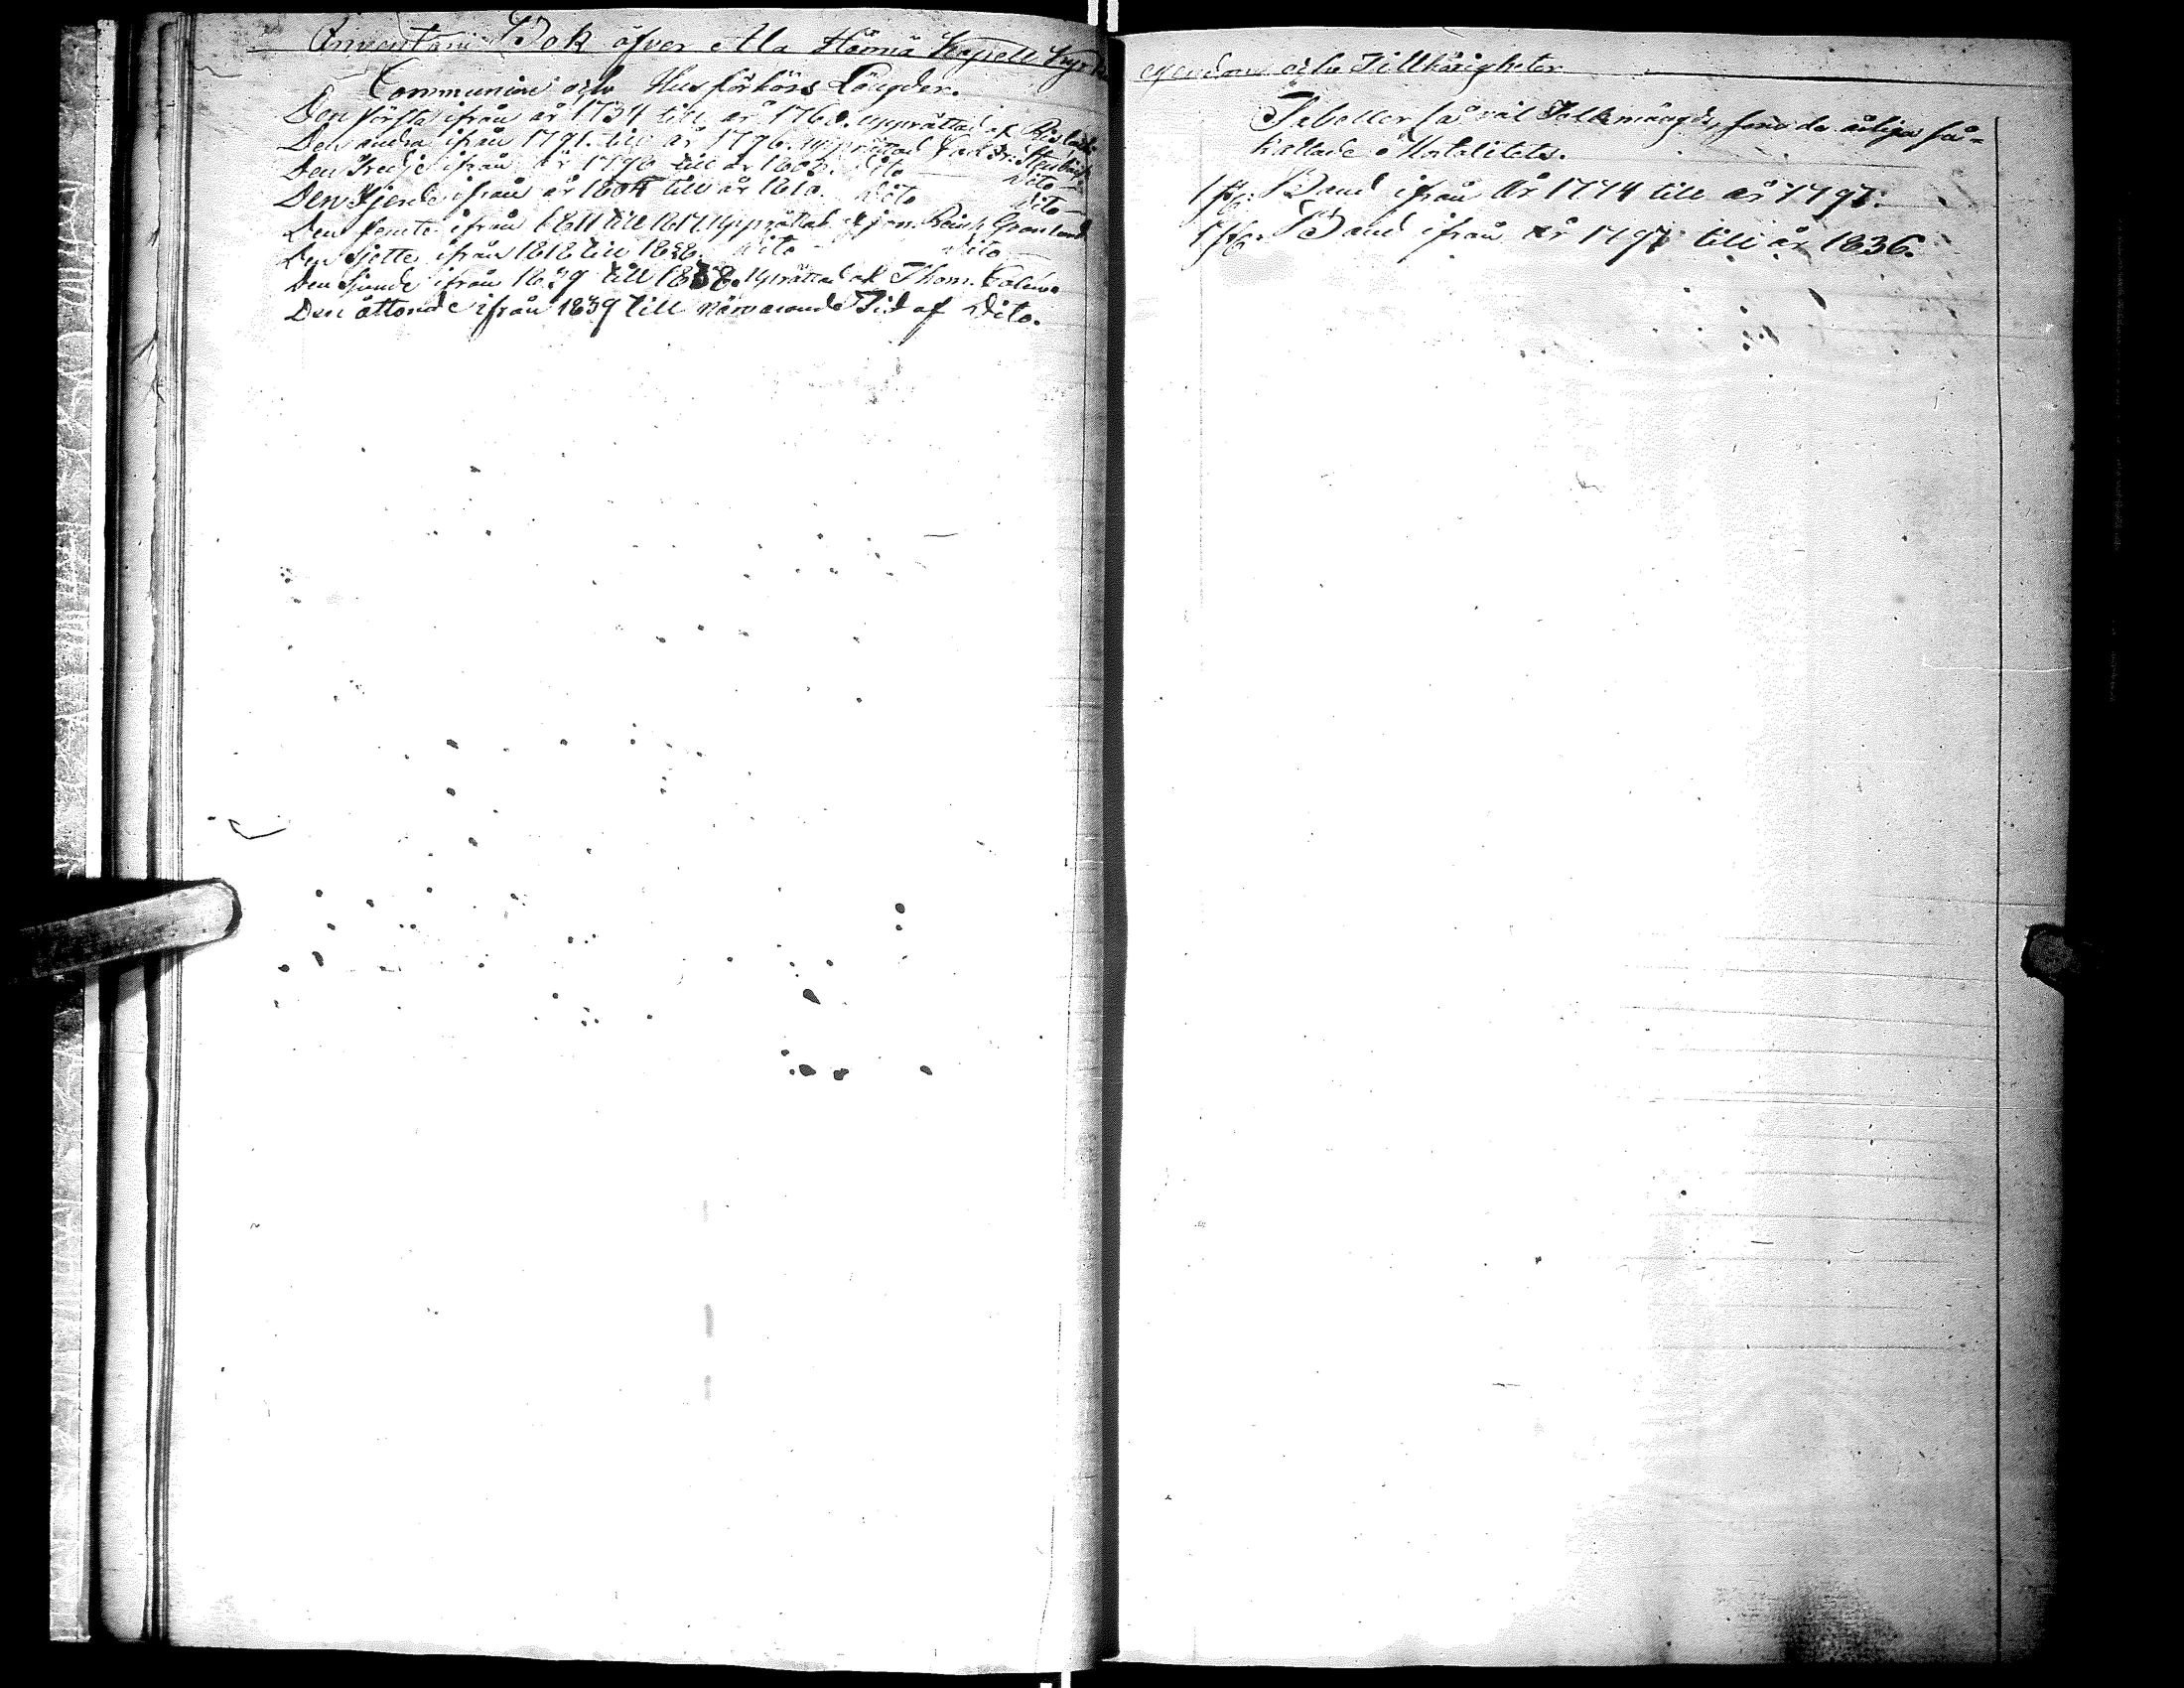 Inventarii Bok öfver Ala Hämiä Kapell Kyrko
Communion och Husförhörs Längder.
Den första ifrån år 1734 till år 1760. upprättad af
Den andra ifrån 1791. till år 1796. upprättad
Den Tredje ifrån år 1796 till år 1803. Dito Dito
Den Fjerde ifrån år 1804 till år 1810. Dito Dito
Den femte ifrån 1811 till 1817. Upprättad af
Den Sjette ifrån 1818 till 1828. Dito Dito
Den Sjunde ifrån 1829 till 1838. Uprättad af Thom.
Den åttonde ifrån 1839 till närvarande Tid af Dito.
egendom och Tillhörigheter
Tabeller så väl Folkmängds, som de årliga så-
kallade Mortalitets.
1 st: Band ifrån År 1774 till år 1797.
1 st: Band ifrån år 1797 till år 1836.